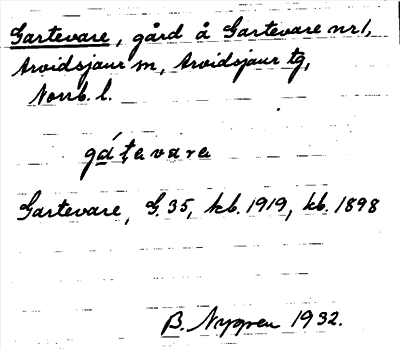 Gartevare, gård å Gartevare nr 1,
Arvidsjaur sn, Arvidsjaur tg,
Norrb. l.
gá́ṭevare
Gartevare, G. 35, kb. 1919, kb. 1898
B. Nygren 1932.